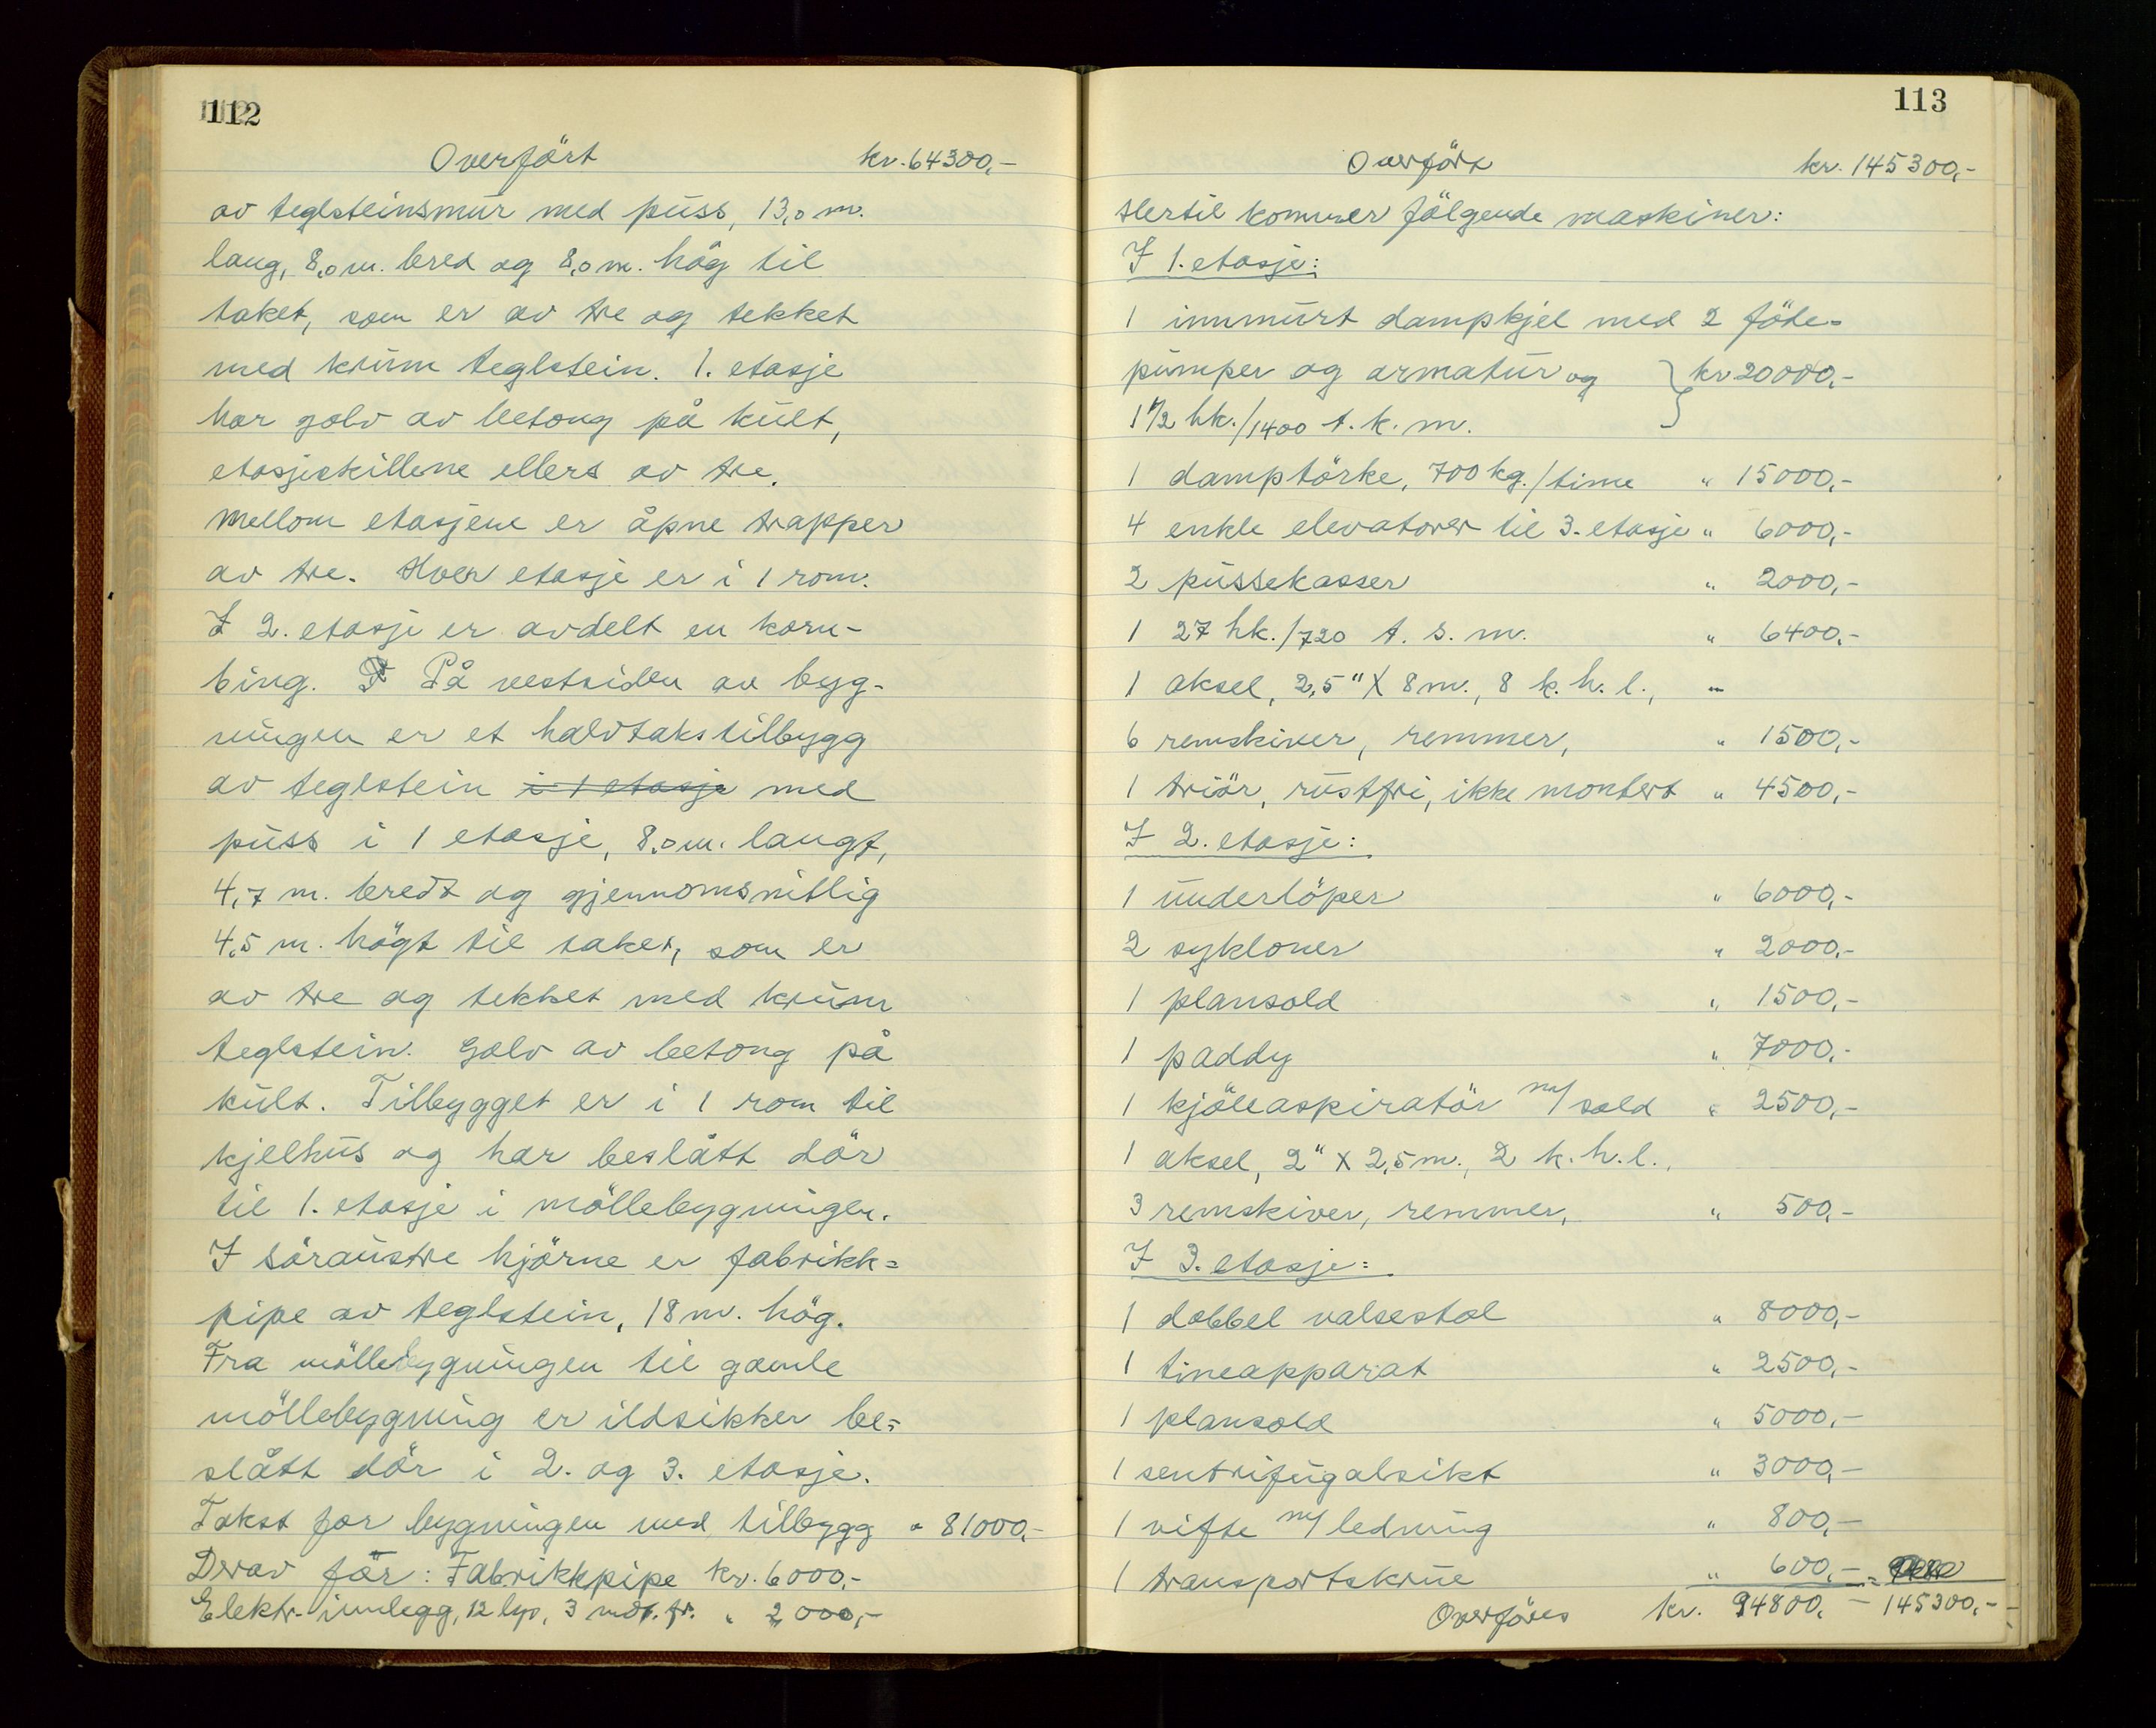 112
Overfört kr. 64300,-
av teglsteinsmur med puss, 13,0 m.
lang, 8,0 m. bred og 8,0 m. hög til
taket, som er av tre og tekket
med krum teglstein. 1. etasje
har golv av betong på kult,
etasjeskillene ellers av tre.
Mellom etasjene er åpne trapper
av tre. Hver etasje er i 1 rom.
I 2. etasje er avdelt en korn-
bing. På vestsiden av byg-
ningen er et halvtakstilbygg
av teglstein i 1 etasje med
puss i 1 etasje, 8,0 m. langt,
4,7 m. bredt og gjennomsnitlig
4,5 m. högt til taket, som er
av tre og tekket med krum
teglstein. Golv av betong på
kult. Tilbygget er i 1 rom til
kjelhus og har beslått dör
til 1. etasje i möllebygningen.
I söraustre hjörne er fabrikk=
pipe av teglstein, 18 m. hög.
Fra möllebygningen til gamle
möllebygning er ildsikker be=
slått dör i 2. og 3. etasje.
Takst for bygningen med tilbygg " 81000,-
Derav för: Fabrikkpipe kr. 6000,-
Elektr. innlegg, 12 lyp, 3 mot. fr. " 2000,-
113
Overfört kr. 145300,-
Hertil kommer fölgende maskiner:
I 1. etasje:
1 innmurt dampkjel med 2 föde=
pumper og armatur og } kr 20000,-
1 1/2 hk./1400 t. k. m.
1 damptörke, 700 kg./time " 15000,-
4 enkle elevatorer til 3. etasje " 6000,-
2 pussekasser " 2000,-
1 27 hk./720 t. s. m. " 6400,-
1 aksel, 2,5" X 8 m., 8 k. h. l.,
6 remskiver, remmer, " 1500,-
1 triör, rustfri, ikke montert " 4500,-
I 2. etasje:
1 underlöper " 6000,-
2 sykloner " 2000,-
1 plansold " 1500,-
1 paddy " 7000,-
1 kjöleaspiratör m/ sold " 2500,-
1 aksel, 2" X 2,5 m., 2 k. h. l.,
3 remskiver, remmer, " 500,-
I 3. etasje:
1 dobbel valsestol " 8000,-
1 tineapparat " 2500,-
1 plansold " 5000,-
1 sentrifugalsikt " 3000,-
1 vifte m/ ledning " 800,-
1 transportskrue " 600,-
Overföres kr. 94800,- 145300,-